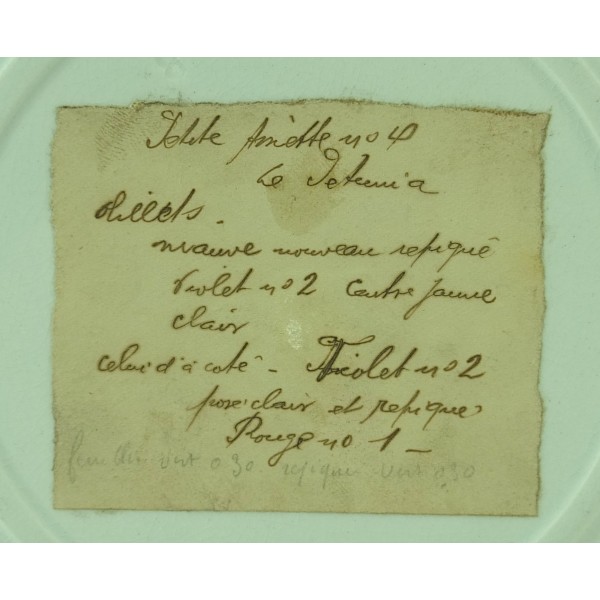 Petite Assiette no 4
Le Petunia
Œillets.
mauve nouveau repiqué
Violet no 2 Centre jaune
clair
celui d'à coté - Violet no 2
posé clair et repiqué
Rouge no 1 -
vert 030. repiqué vert 030